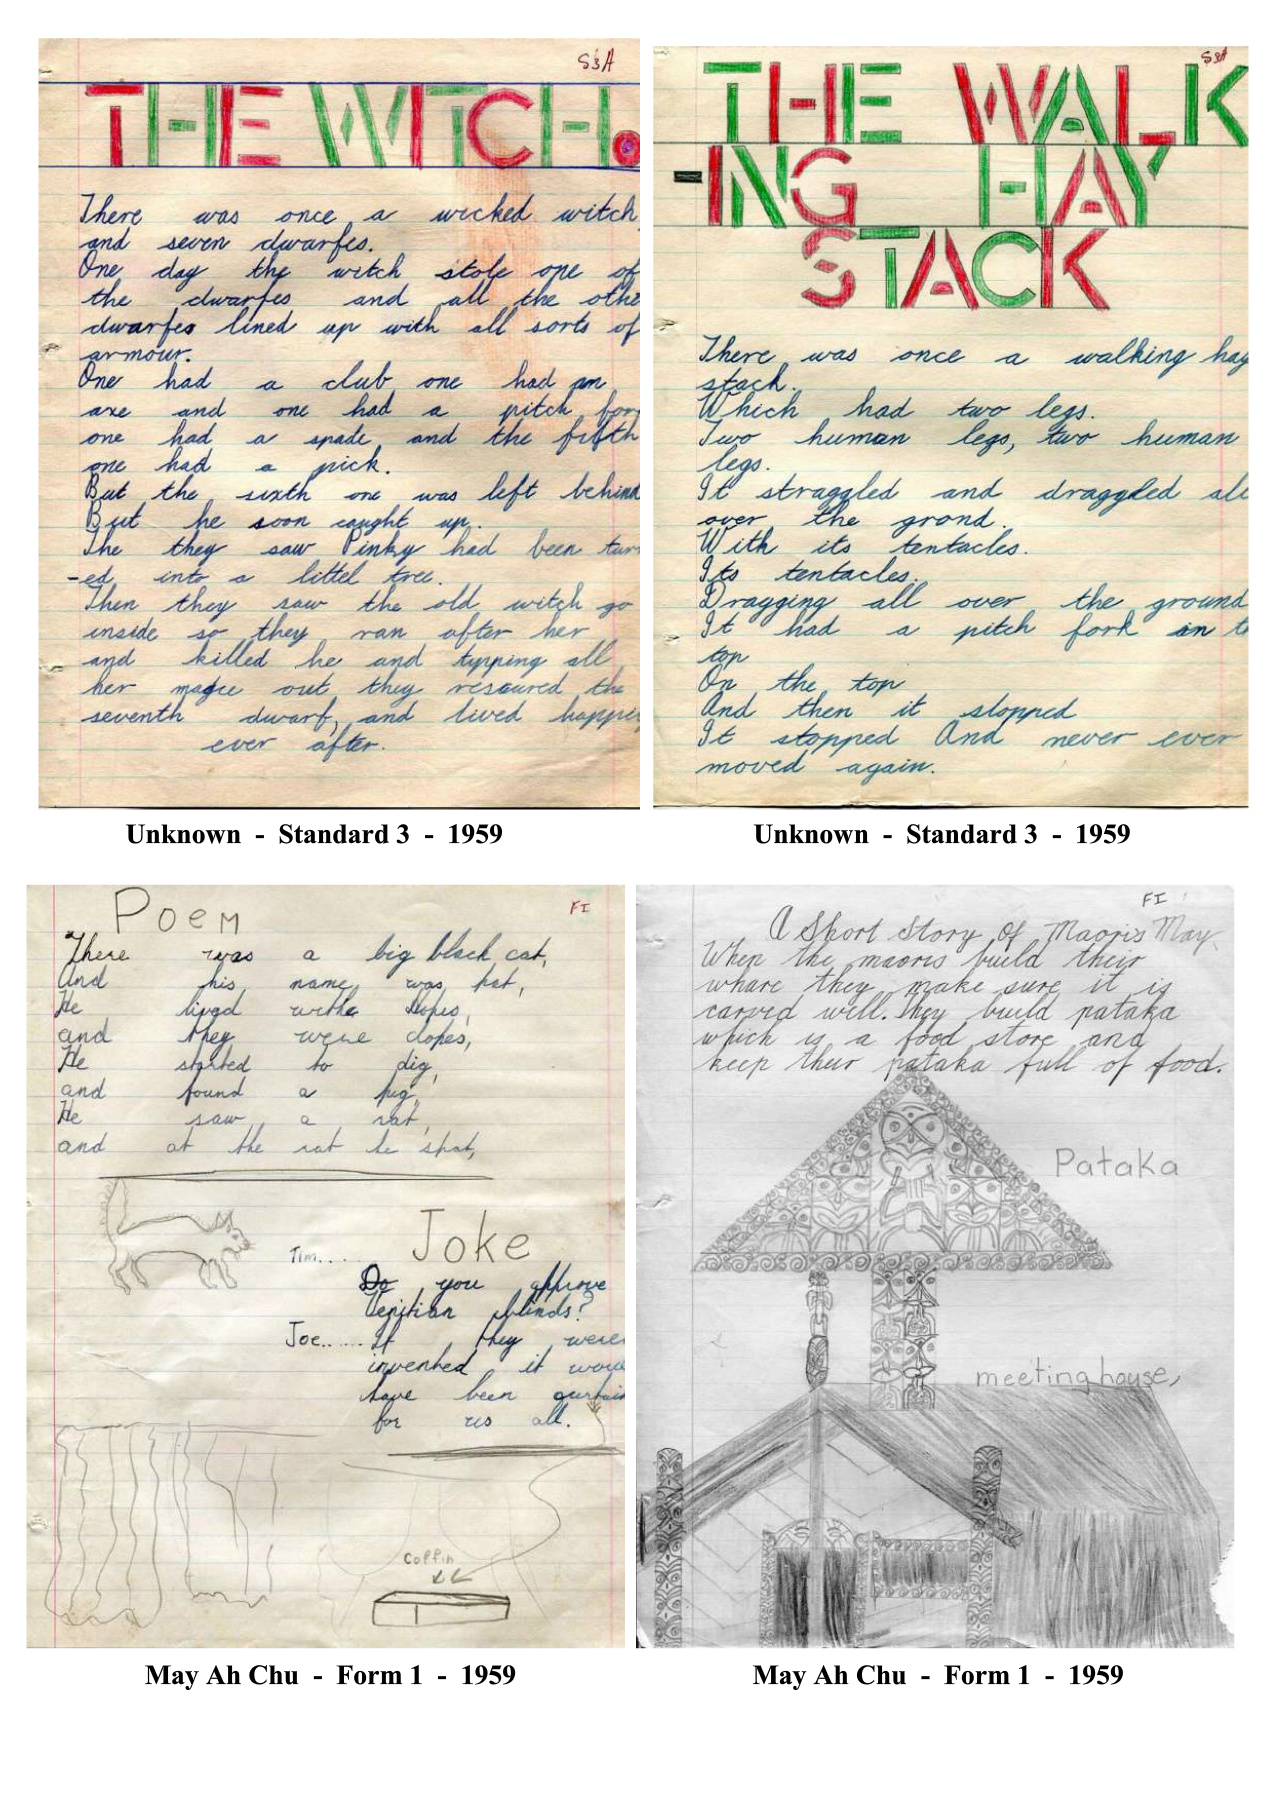 S3A
THE WITCH.
There was once a wicked witch
and seven dwarfes.
One day the witch stole one of
the dwarfes and all the othe
dwarfes lined up with all sorts of
armour.
One had a club one had an
axe and one had a pitch for
one had a spade and the fifth
one had a pick.
But the sixth one was left behind
But he soon caught up.
The they saw Pinky had been turn
-ed into a littel tree.
Then they saw the old witch go
inside so they ran after her
and killed he and typping all
her magic out they rescured the
seventh dwarf, and lived happi
ever after.
Unknown - Standard 3 - 1959
S3A
THE WALK
-ING HAY
STACK
There was once a walking hay
stack.
Which had two legs.
Two human legs, two human
legs.
It straggled and draggled all
over the grond.
With its tentacles.
Its tentacles.
Dragging all over the ground
It had a pitch fork on t
top
On the top
And then it stopped
It stopped And never ever
moved again.
Unknown - Standard 3 - 1959
Poem
F1
There was a big black cat,
And his name was pat,
He lived withe
and they were dopes,
He started to dig,
and found a pig,
He saw a rat,
and at the rat he spat,
Joke
Tim.....
Do you approve
Venitian blinds?
Joe...... If they were
invented it woul
have been curtain
for us all.
Coffin
May Ah Chu - Form 1 - 1959
F1
A Short Story of Maoris May.
When the maoris build their
whare they make sure it is
carved well. They build pataka
which is a food store and
keep their pataka full of food.
Pataka
meeting house,
May Ah Chu - Form 1 - 1959